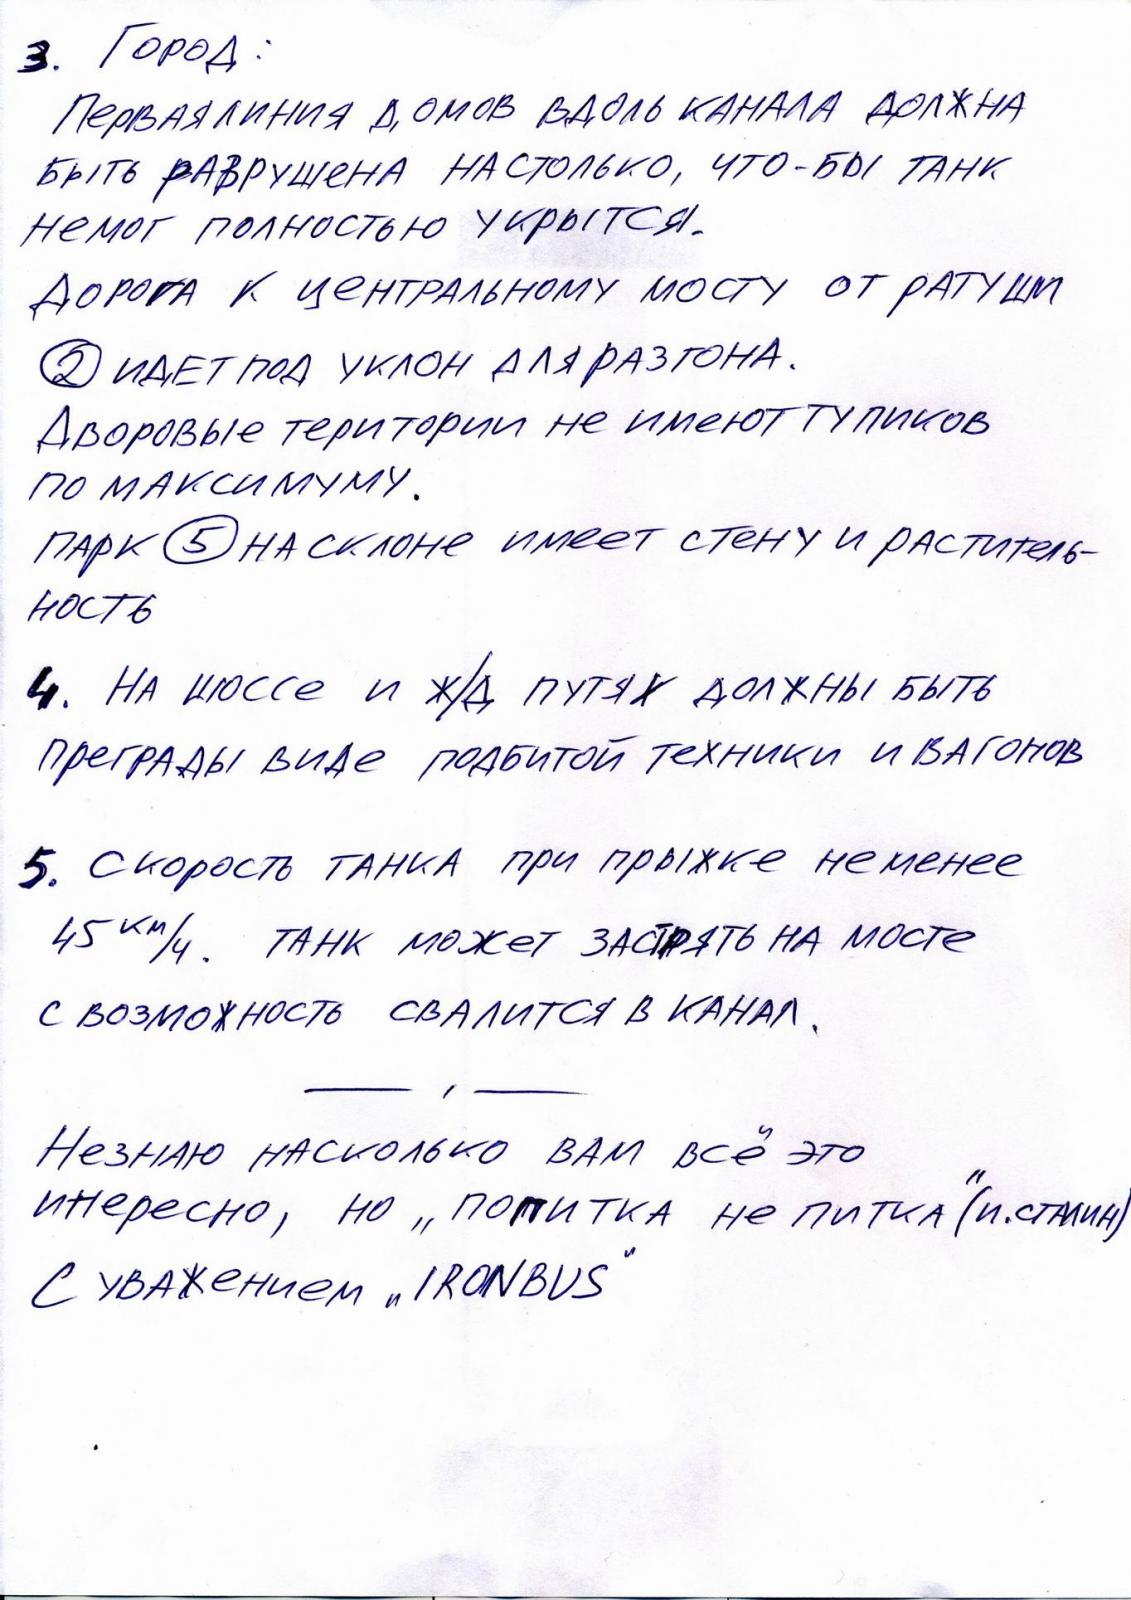 3. Город:
Первая линия домов вдоль канала должна
быть разрушена настолько, что-бы танк
немог полностью укрытся.
Дорога к центральному мосту от ратуши
② идет под уклон для разгона.
Дворовые територии не имеют тупиков
по максимуму.
Парк ⑤ на склоне имеет стену и раститель-
ность
4. На шоссе и ж/д путях должны быть
преграды виде подбитой техники и вагонов
5. Скорость танка при прыжке не менее
45 км/ч. танк может застрять на мосте
с возможность свалится в канал.
Незнаю насколько вам всё это
инересно, но „попитка не питка" (И. Сталин)
С уважением „IRONBUS"